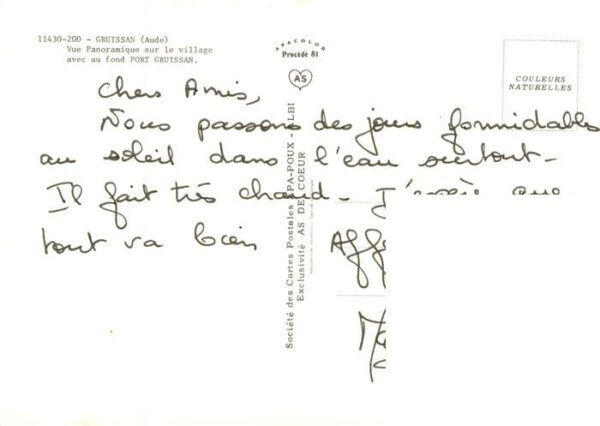 11430-200 - GRUISSAN (Aude)
Vue Panoramique sur le village
avec au fond PORT GRUISSAN.
APACOLOR
Procédé 81
AS
COULEURS
NATURELLES
Chers Amis,
Nous passons des jours formidables
au soleil dans l'eau surtout-
Il fait très chaud-
tout va bien
Société des Cartes Postales APA-POUX - ALBI
Exclusivité AS DE COEUR